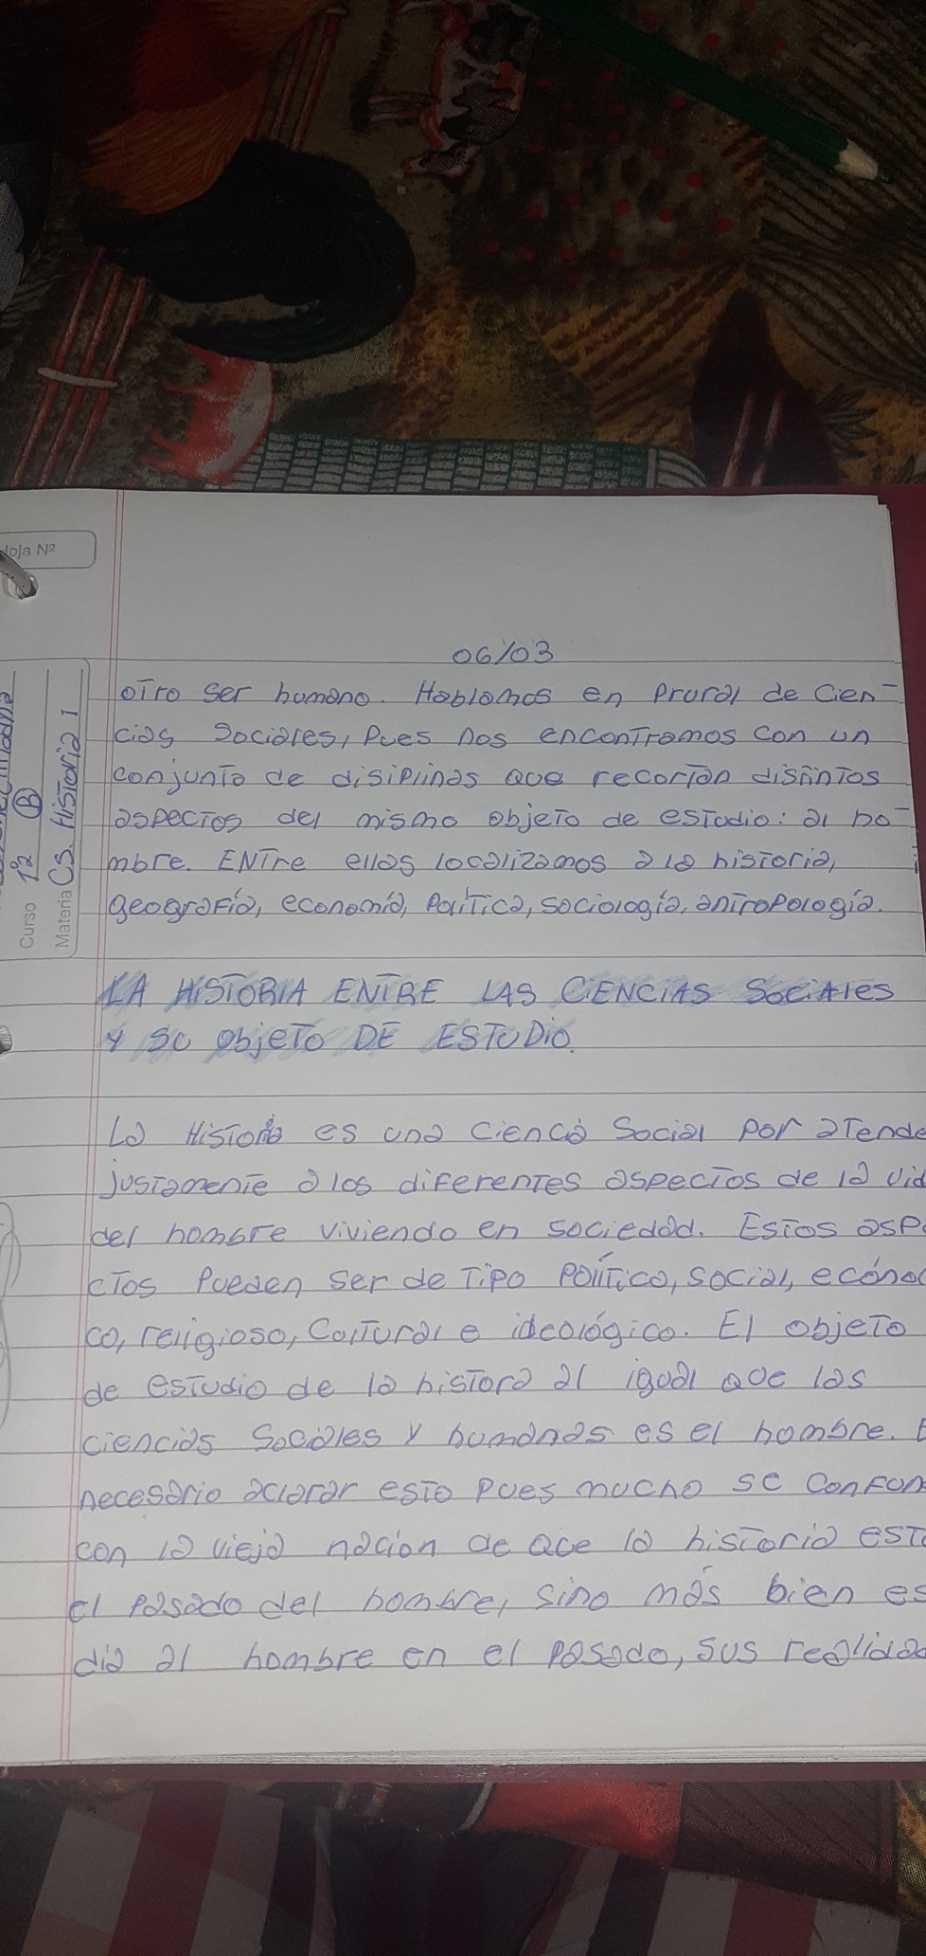 Hoja Nº
Curso 1º2 B
Materia Cs. Historia 1
06/03
otro ser humano. Hablamos en Prural de Cien-
cias Sociales, Pues nos encontramos con un
conjunto de disiplinas que recortan distintos
aspectos del mismo objeto de estudio: al ho-
mbre. ENTre ellas localizamos a la historia,
geografía, economía, Política, sociología, antropología.
LA HISTORIA ENTRE LAS CIENCIAS SOCIALES
Y SU objeTo DE ESTUDIO.
La Historia es una ciencia Social por atende
justamente a los diferentes aspectos de la vid
del hombre viviendo en sociedad. Estos aspe
ctos Pueden ser de Tipo Político, social, econó
co, religioso, Cultural e ideológico. El objeto
de estudio de la histora al igual que las
ciencias Sociales y humanas es el hombre. E
necesario aclarar esto pues mucho se confun
con la vieja nacion de que la historia est
el pasado del hombre, sino más bien es
dia al hombre en el pasado, sus realidad